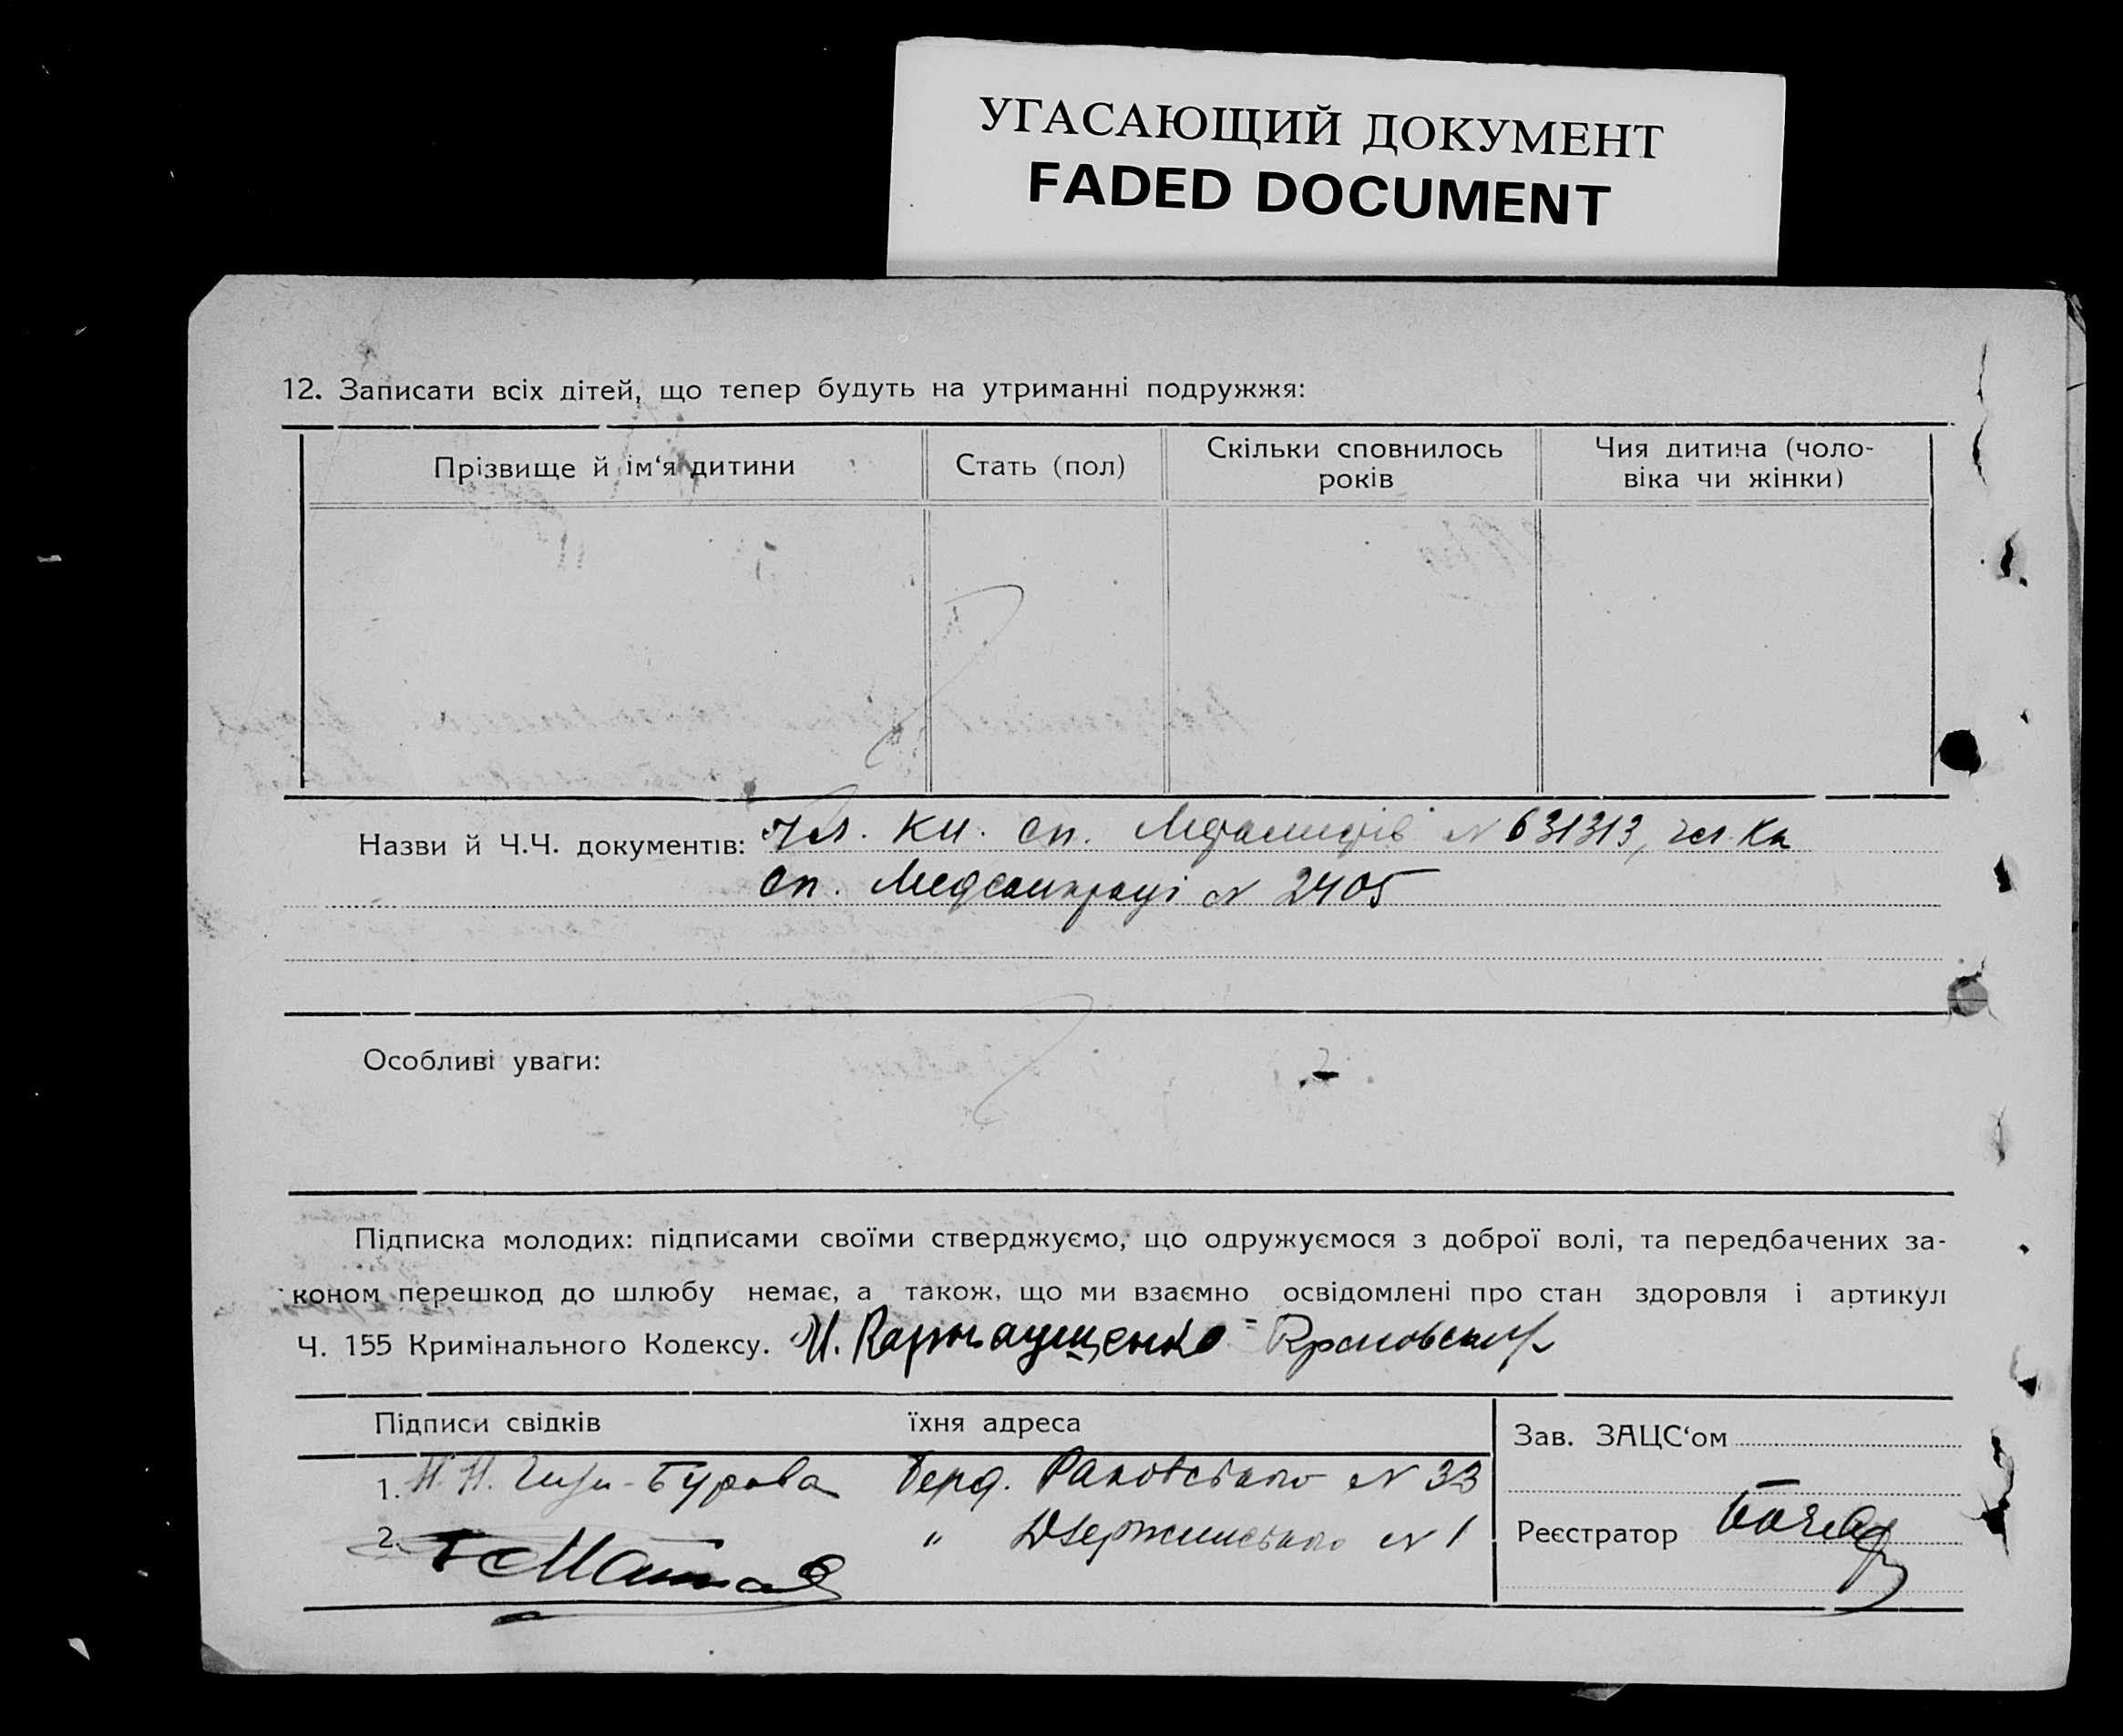 УГАСАЮЩИЙ ДОКУМЕНТ
FADED DOCUMENT
12. Записати всіх дітей, що тепер будуть на утриманні подружжя:
Прізвище й ім‘я дитини
Стать (пол)
Скільки сповнилось
років
Чия дитина (чоло-
віка чи жінки)
Назви й Ч.Ч. документів: Чл. кн. сп. Металистів N 631313, чл. Кн
сп. Медсанпраці N 2405
Особливі уваги:
Підписка молодих: підписами своїми стверджуємо, що одружуємося з доброї волі, та передбачених за-
коном перешкод до шлюбу немає, а також, що ми взаємно освідомлені про стан здоровля і артикул
Ч. 155 Кримінального Кодексу.
Підписи свідків
їхня адреса
1. Бурова Берд. Раковського N 33
2. " Дзержинського N 1
Зав. ЗАЦС‘ом
Реєстратор